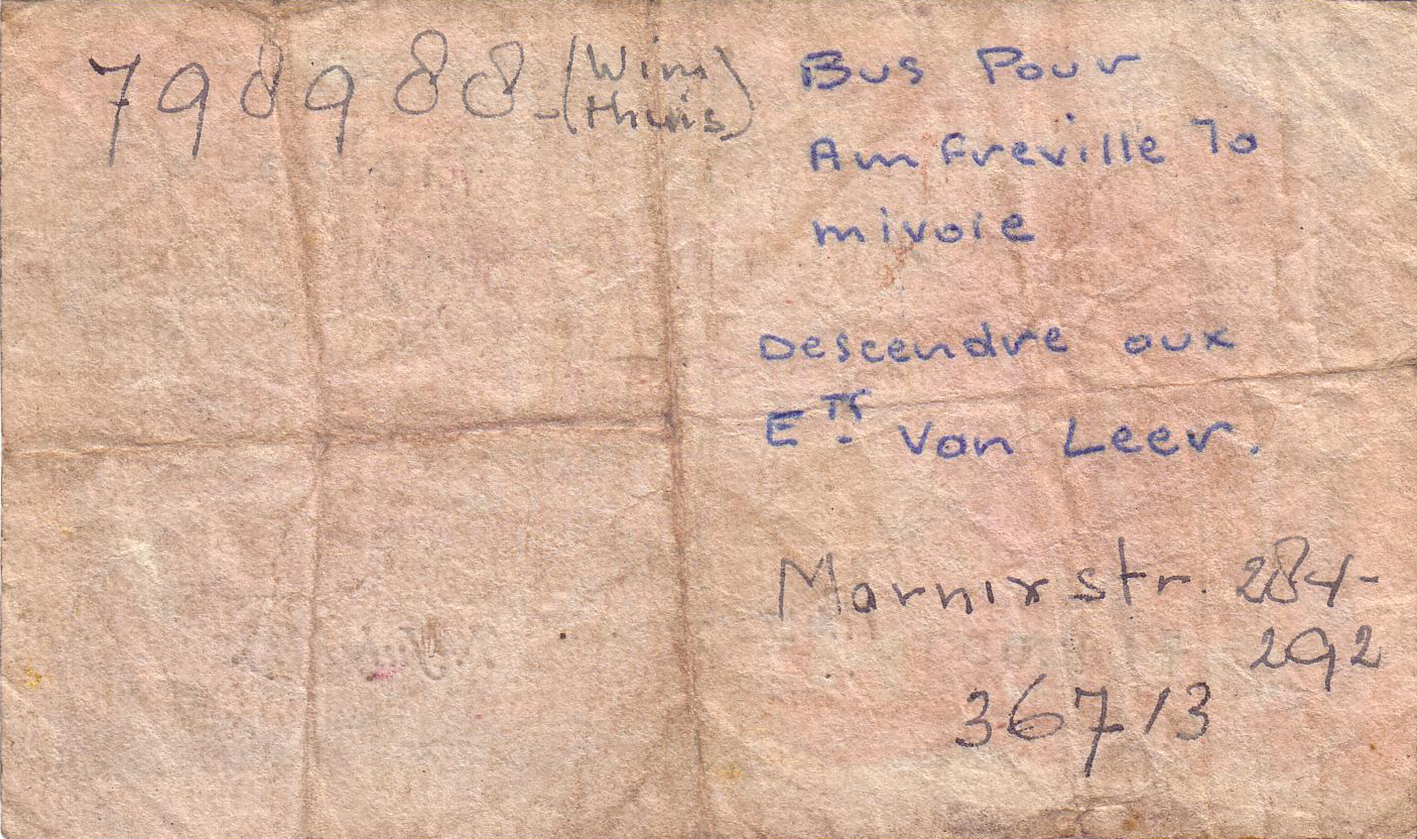 798988-(Wim thuis)
Bus Pour
Amfreville 70
mivoie
Descendre aux
E^TS. Van Leer.
Marnixstr. 284-
292
36713